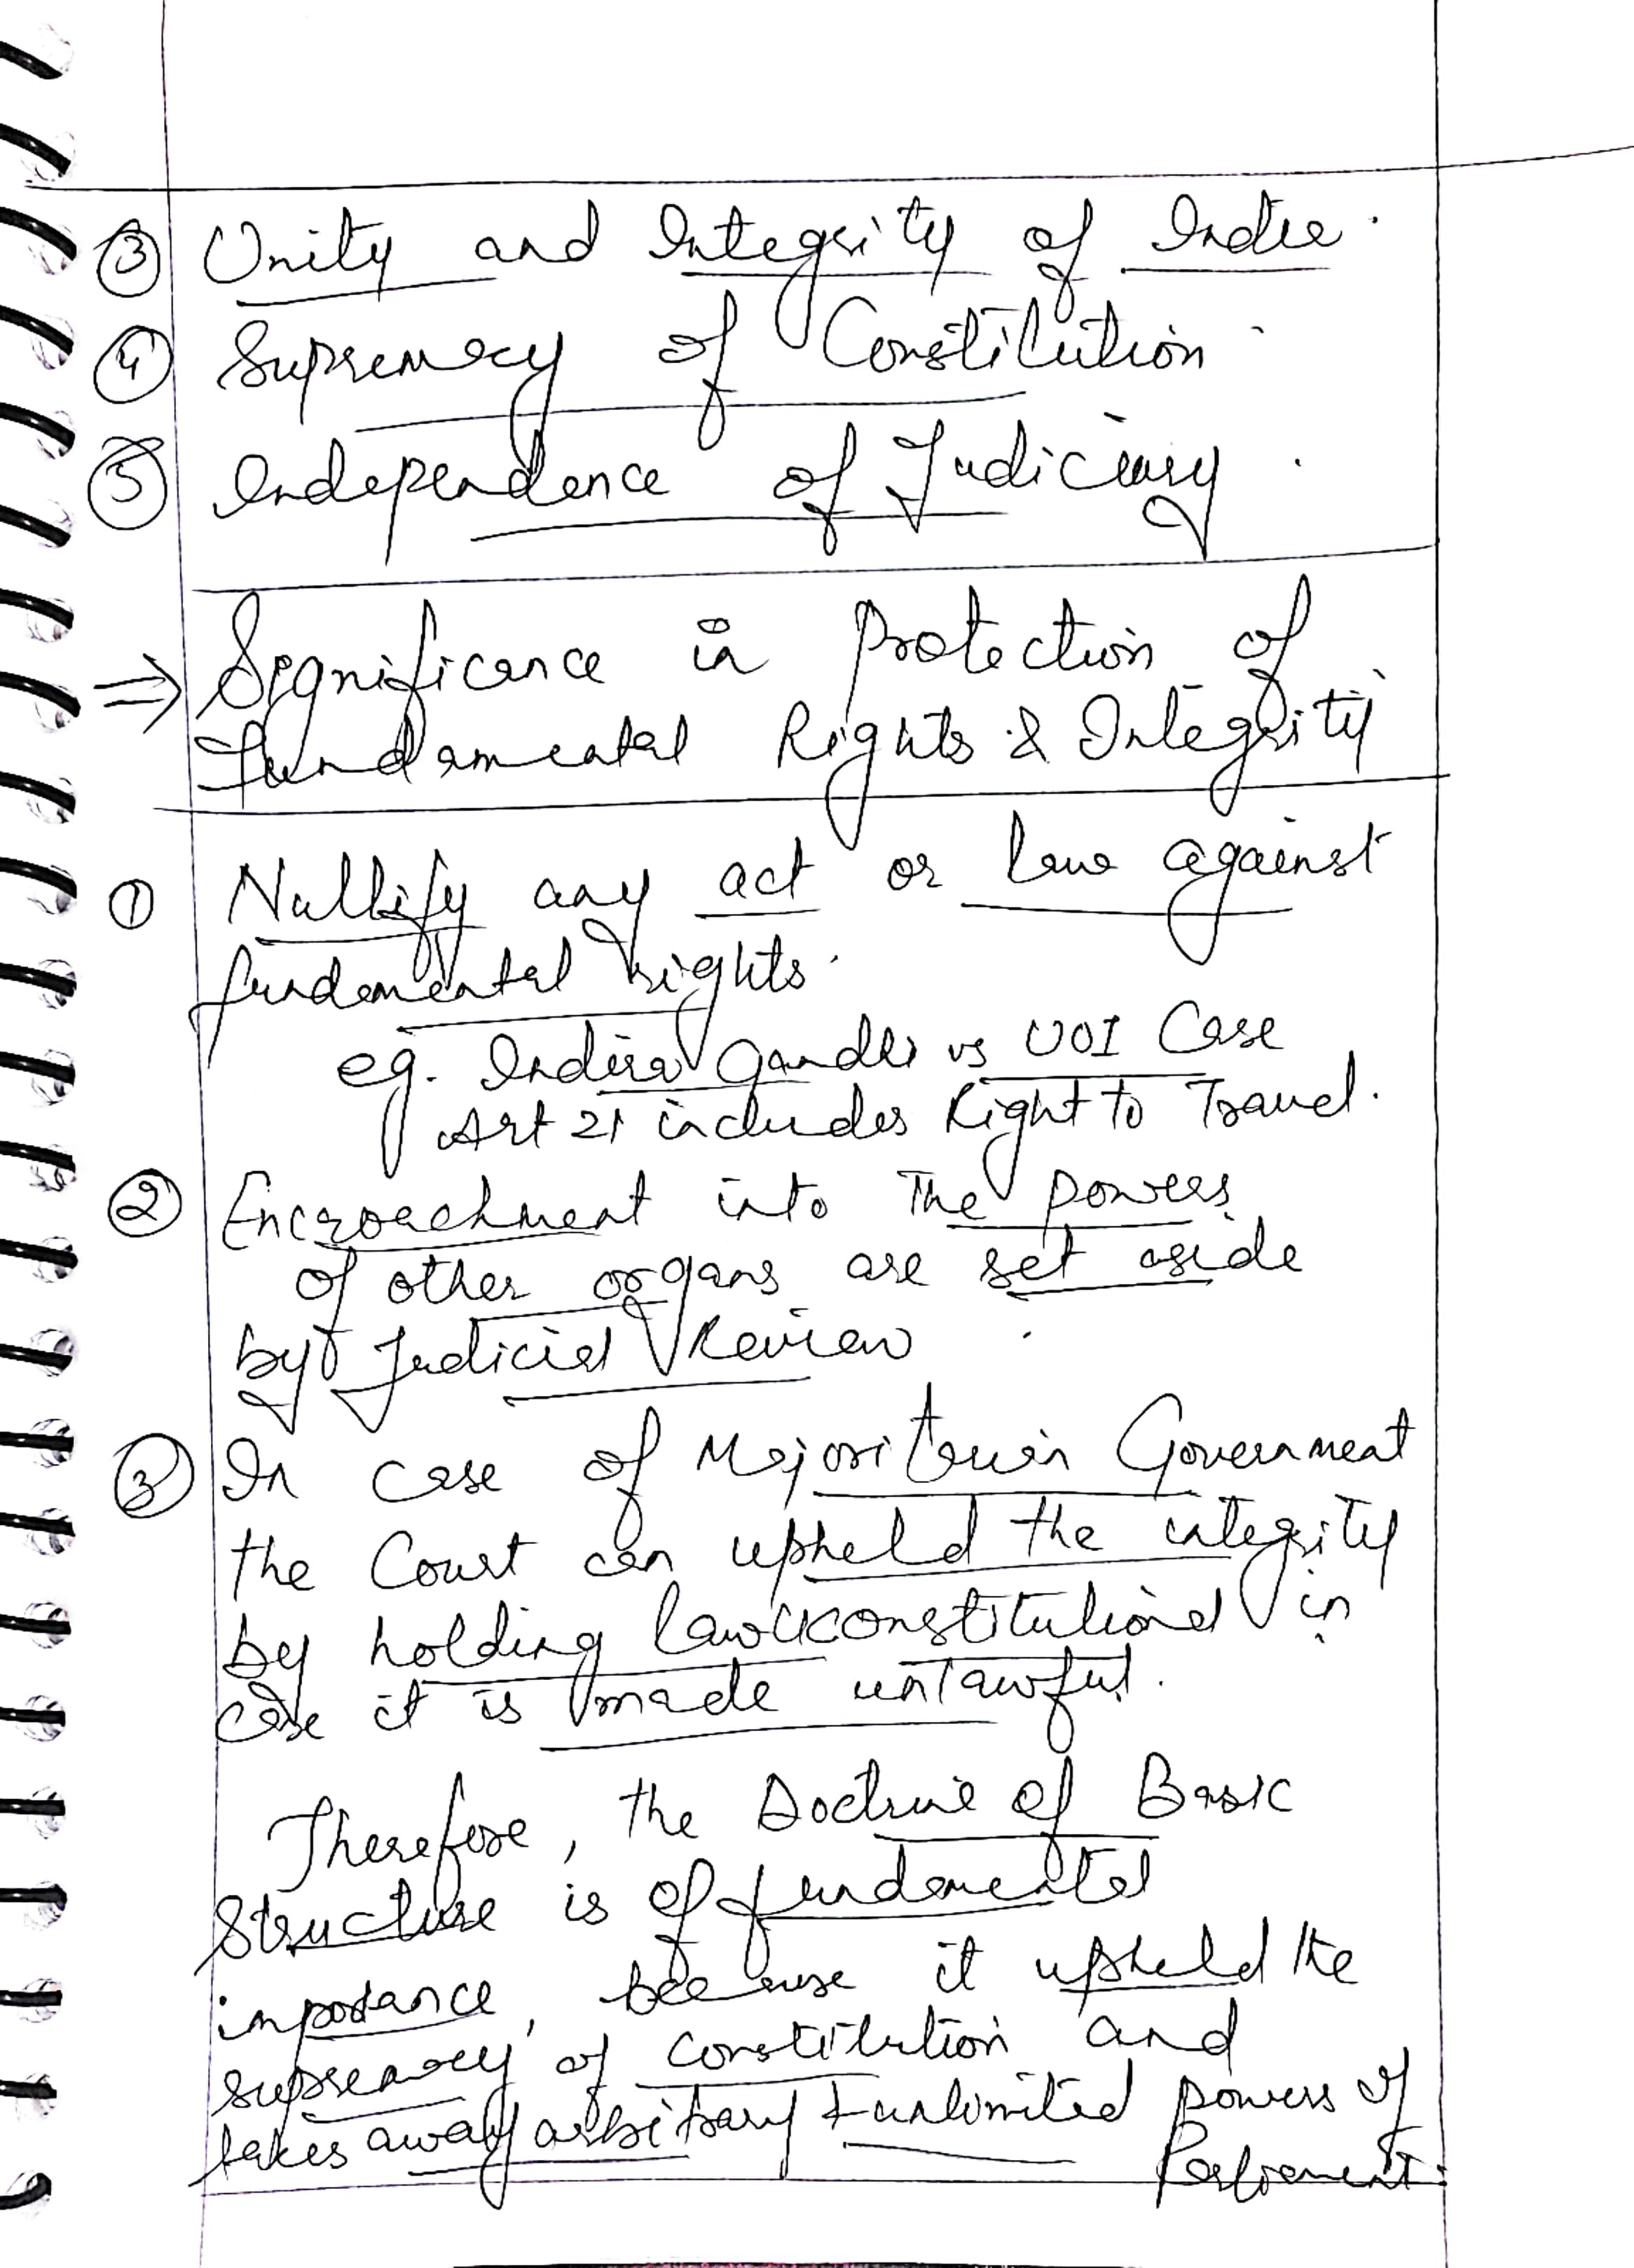 ③ Unity and Integrity of India.
④ Supremacy of Constitution.
⑤ Independence of Judiciary.
⇒ Significance in protection of
fundamental Rights & Integrity
① Nullify any act or law against
fundamental rights.
eg. Indira Gandhi vs UOI Case
Art 21 includes Right to Travel.
② Encroachment into The powers
of other organs are set aside
by Judicial Review
③ In case of Majoritarian Government
the Court can upheld the integrity
by holding law constitutional in
case it is made unlawful.
Therefore, the Doctrine of Basic
Structure is of fundamental
importance, because it upheld the
supremacy of constitution and
takes away arbitrary & unlimited powers of
Parliament.